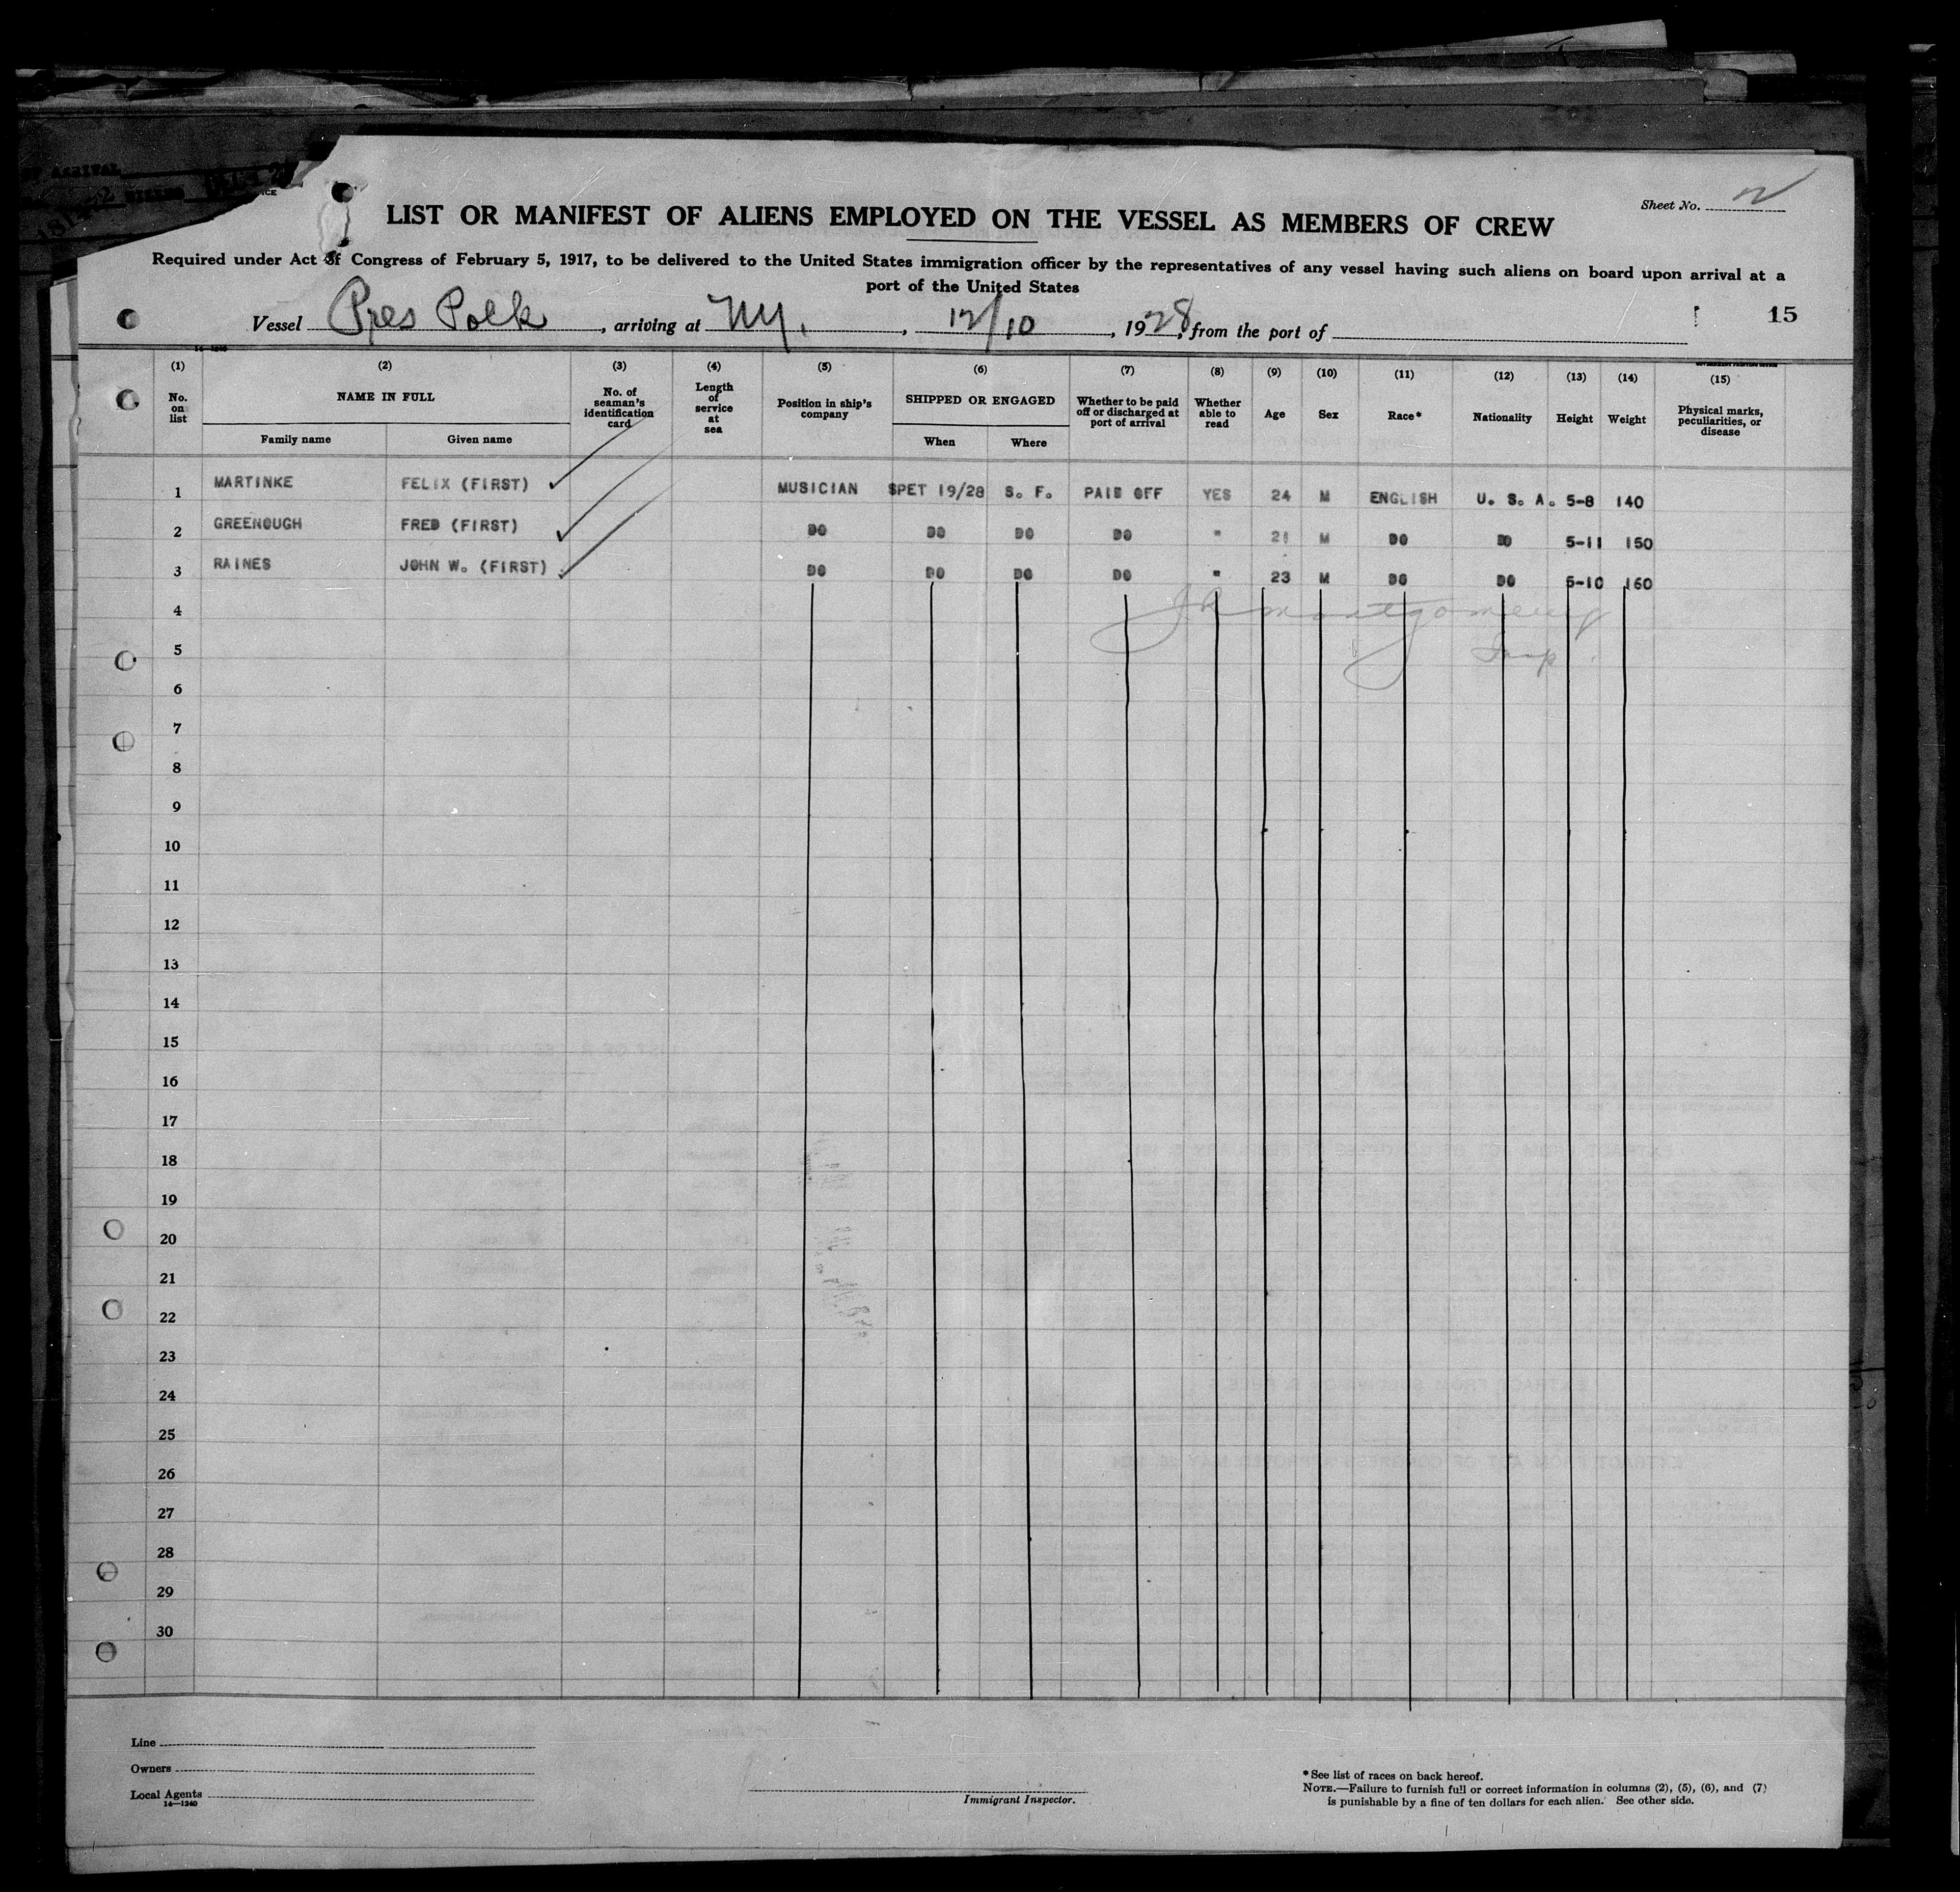 OF ARRIVAL
Sheet No. 2
LIST OR MANIFEST OF ALIENS EMPLOYED ON THE VESSEL AS MEMBERS OF CREW
Required under Act of Congress of February 5, 1917, to be delivered to the United States immigration officer by the representatives of any vessel having such aliens on board upon arrival at a
port of the United States
Vessel Pres Polk, arriving at NY., 12/10, 1928, from the port of
15
(1) (2) (3) (4) (5) (6) (7) (8) (9) (10) (11) (12) (13) (14) (15)
No. on list NAME IN FULL No. of seaman's identification card Length of service at sea Position in ship's company SHIPPED OR ENGAGED Whether to be paid off or discharged at port of arrival Whether able to read Age Sex Race* Nationality Height Weight Physical marks, peculiarities, or disease
Family name Given name When Where
1 MARTINKE FELIX (FIRST) MUSICIAN SPET 19/28 S. F. PAID OFF YES 24 M ENGLISH U. S. A. 5-8 140
2 GREENOUGH FRED (FIRST) DO DO DO DO " 21 M DO DO 5-11 150
3 RAINES JOHN W. (FIRST) DO DO DO DO " 23 M DO DO 5-10 160
4 JR Montgomery
5 Insp.
6
7
8
9
10
11
12
13
14
15
16
17
18
19
20
21
22
23
24
25
26
27
28
29
30
Line
Owners
Local Agents
14—1240
Immigrant Inspector.
*See list of races on back hereof.
NOTE.—Failure to furnish full or correct information in columns (2), (5), (6), and (7)
is punishable by a fine of ten dollars for each alien. See other side.